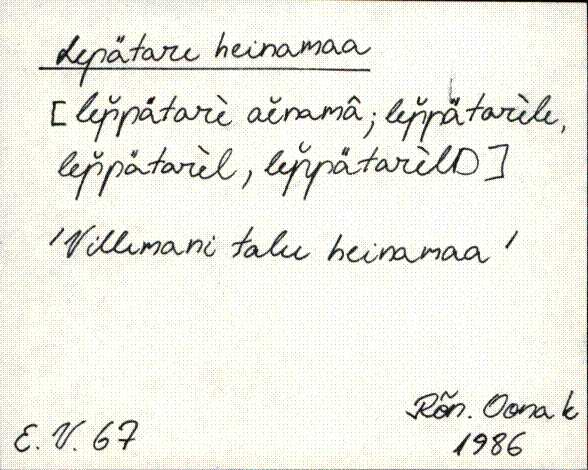 Lepätare heinamaa
[lep̆pätarè aĕnamâ; lep̆pätarèle,
lep̆pätarèl, lep̆pätarèlD]
'Villemani talu heinamaa'
Rõn. Oona k
E. V. 67 1986